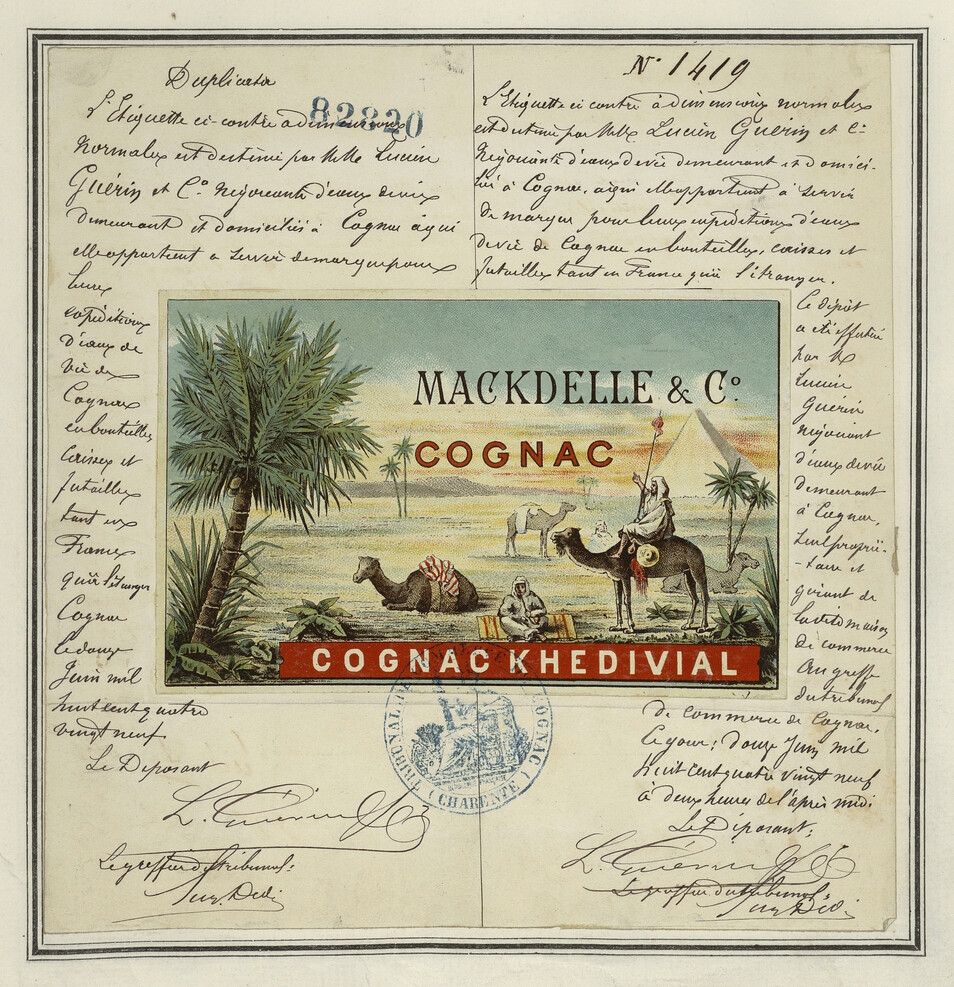 Duplicata
82820
L'Etiquette ci-contre à dimensions
normales est destiné par MMrs Lucien
Guérin et Co Négociants d'eaux de vie
demeurant et domiciliés à Cognac à qui
elle appartient à servir de marque pour
leurs
expéditions
d'eaux de
vie de
Cognac
en bouteilles
Caisses et
futailles
tant en
France
qu'à l'étranger
Cognac
le douze
Juin mil
huit cent quatre
vingt neuf
Le Déposant
L. Guérin & Co
Le greffier du tribunal:
No 1419
L'Etiquette ci contre à dimensions normales
est destiné par MMrs Lucien Guérin et Co
Négociants d'eaux de vie demeurant et domici-
liés à Cognac, à qui elle appartient à servir
de marque pour leurs expéditions d'eaux
de vie de Cognac en bouteilles, caisses et
futailles tant en France qu'à l'étranger.
Ce dépôt
a été effectué
par M
Lucien
Guérin
négociant
d'eaux de vie
demeurant
à Cognac,
seul proprié-
-taire et
gérant de
la dite maison
de commerce
au greffe
du tribunal
de commerce de Cognac,
ce jour: douze Juin mil
huit cent quatre vingt neuf
à deux heures de l'après midi
Le Déposant;
L. Guérin & Co
Le greffier du tribunal:
MACKDELLE & Co.
COGNAC
COGNAC KHEDIVIAL
TRIBUNAL DE COMMERCE DE COGNAC
(CHARENTE)